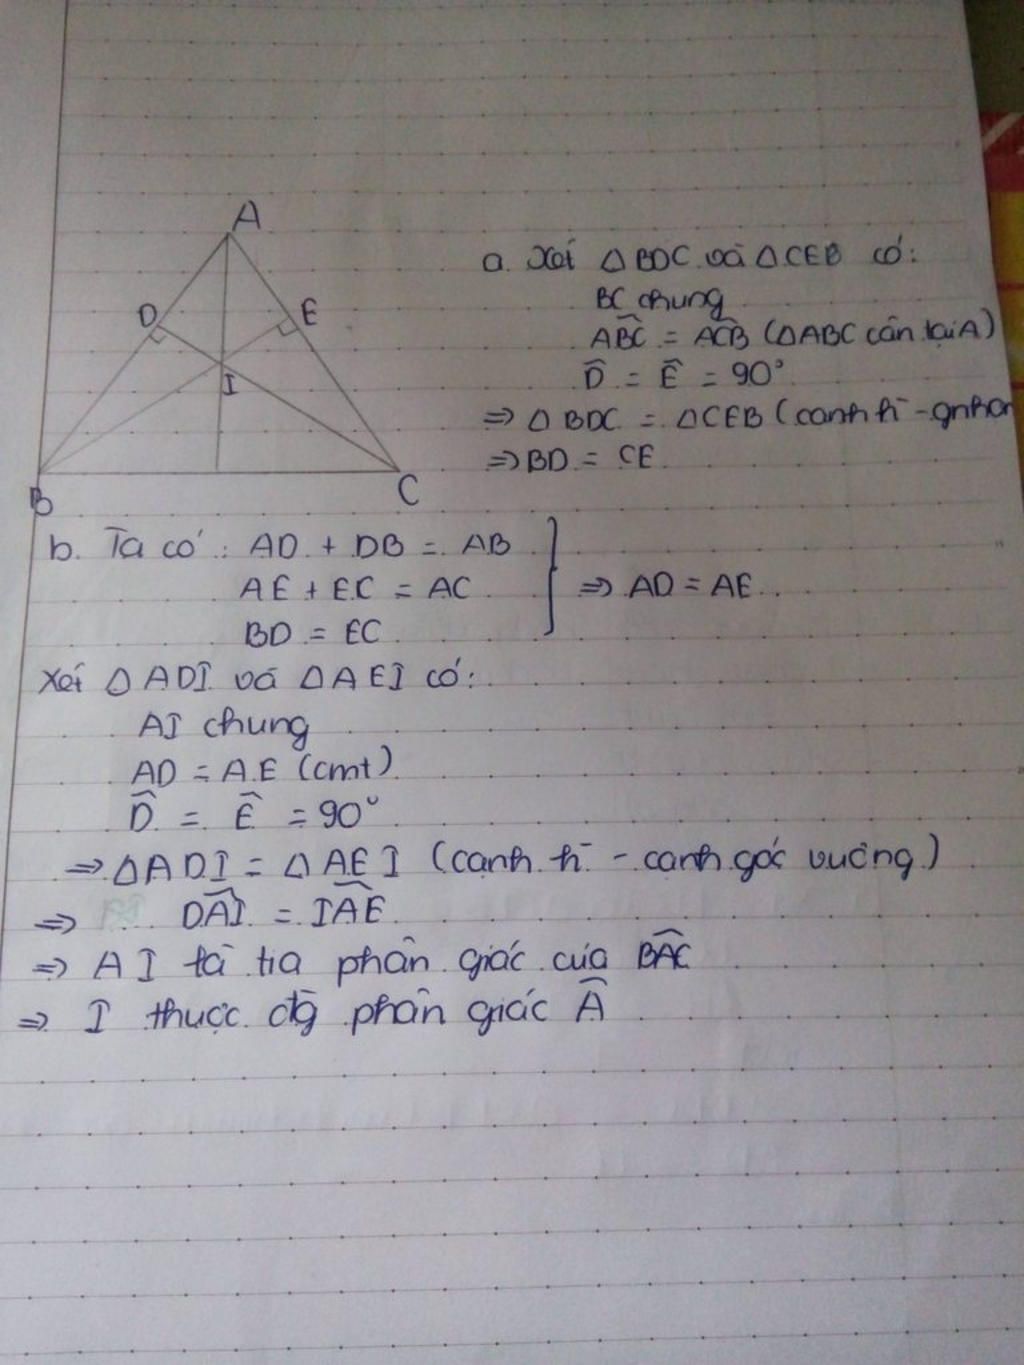 A
D
E
I
B
C
a. Xét △BDC và △CEB có:
BC chung
ABC̑ = ACB̑ (△ABC cân tại A)
D̂ = Ê = 90°
⇒ △BDC = △CEB (cạnh h̄ - gnhọn
⇒ BD = CE
b. Ta có: AD + DB = AB
AE + EC = AC
BD = EC
} ⇒ AD = AE
Xét △ADI và △AEI có:
AI chung
AD = AE (cmt)
D̂ = Ê = 90°
⇒ △ADI = △AEI (cạnh h̄ - cạnh góc vuông)
⇒ DAȊ = IAȆ
⇒ AI là tia phân giác của BAC̑
⇒ I thuộc đg̃ phân giác Â